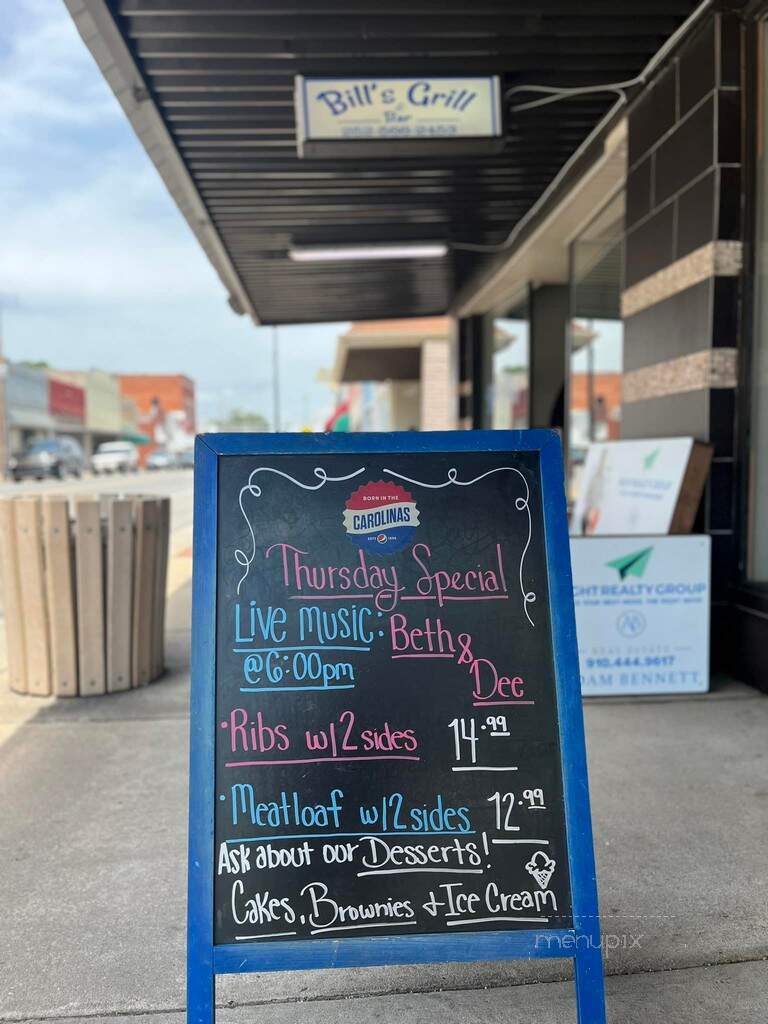 Bill's Grill
Bar
BORN IN THE
CAROLINAS
Thursday Special
Live Music: Beth &
@6:00pm Dee
•Ribs w/2 sides 14.99
•Meatloaf w/2 sides 12.99
Ask about our Desserts!
Cakes, Brownies + Ice Cream
GHT REALTY GROUP
REAL ESTATE
910.444.9617
DAM BENNETT,
menupix